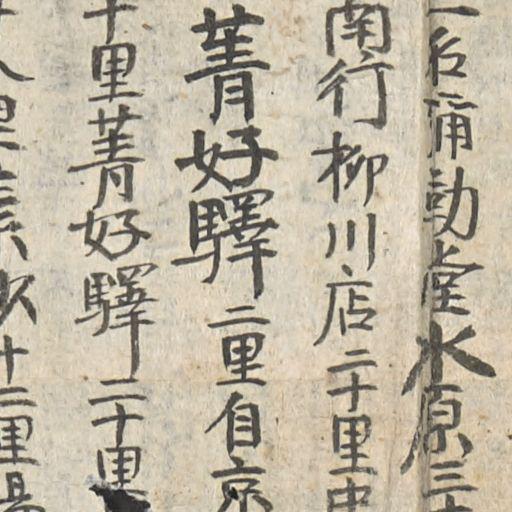 名涌動堂水原三十
南行柳川店二十里忠
菁好驛二里自京
十里菁好驛二十里
十二里